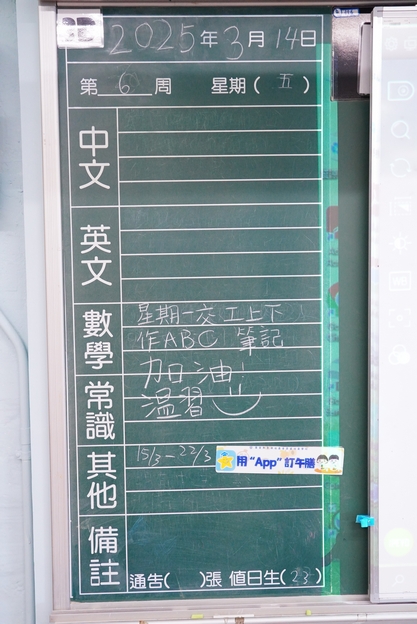 2025年3月14日
第6周 星期(五)
中文
英文
數學
星期一交工上下
作ABC 筆記
加油!
常識
溫習
其他
15/3-22/3
用“App”訂午膳
備註
通告( )張 值日生(23)